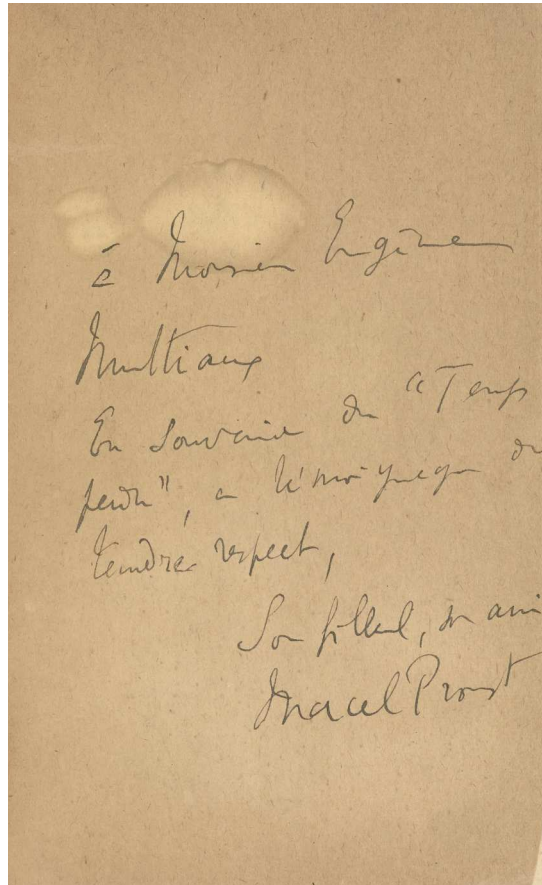 à Monsieur Eugène
Multiaux
En souvenir du "Temps
perdu", en témoignage du
tendre respect,
Son filleul, son ami
Marcel Proust